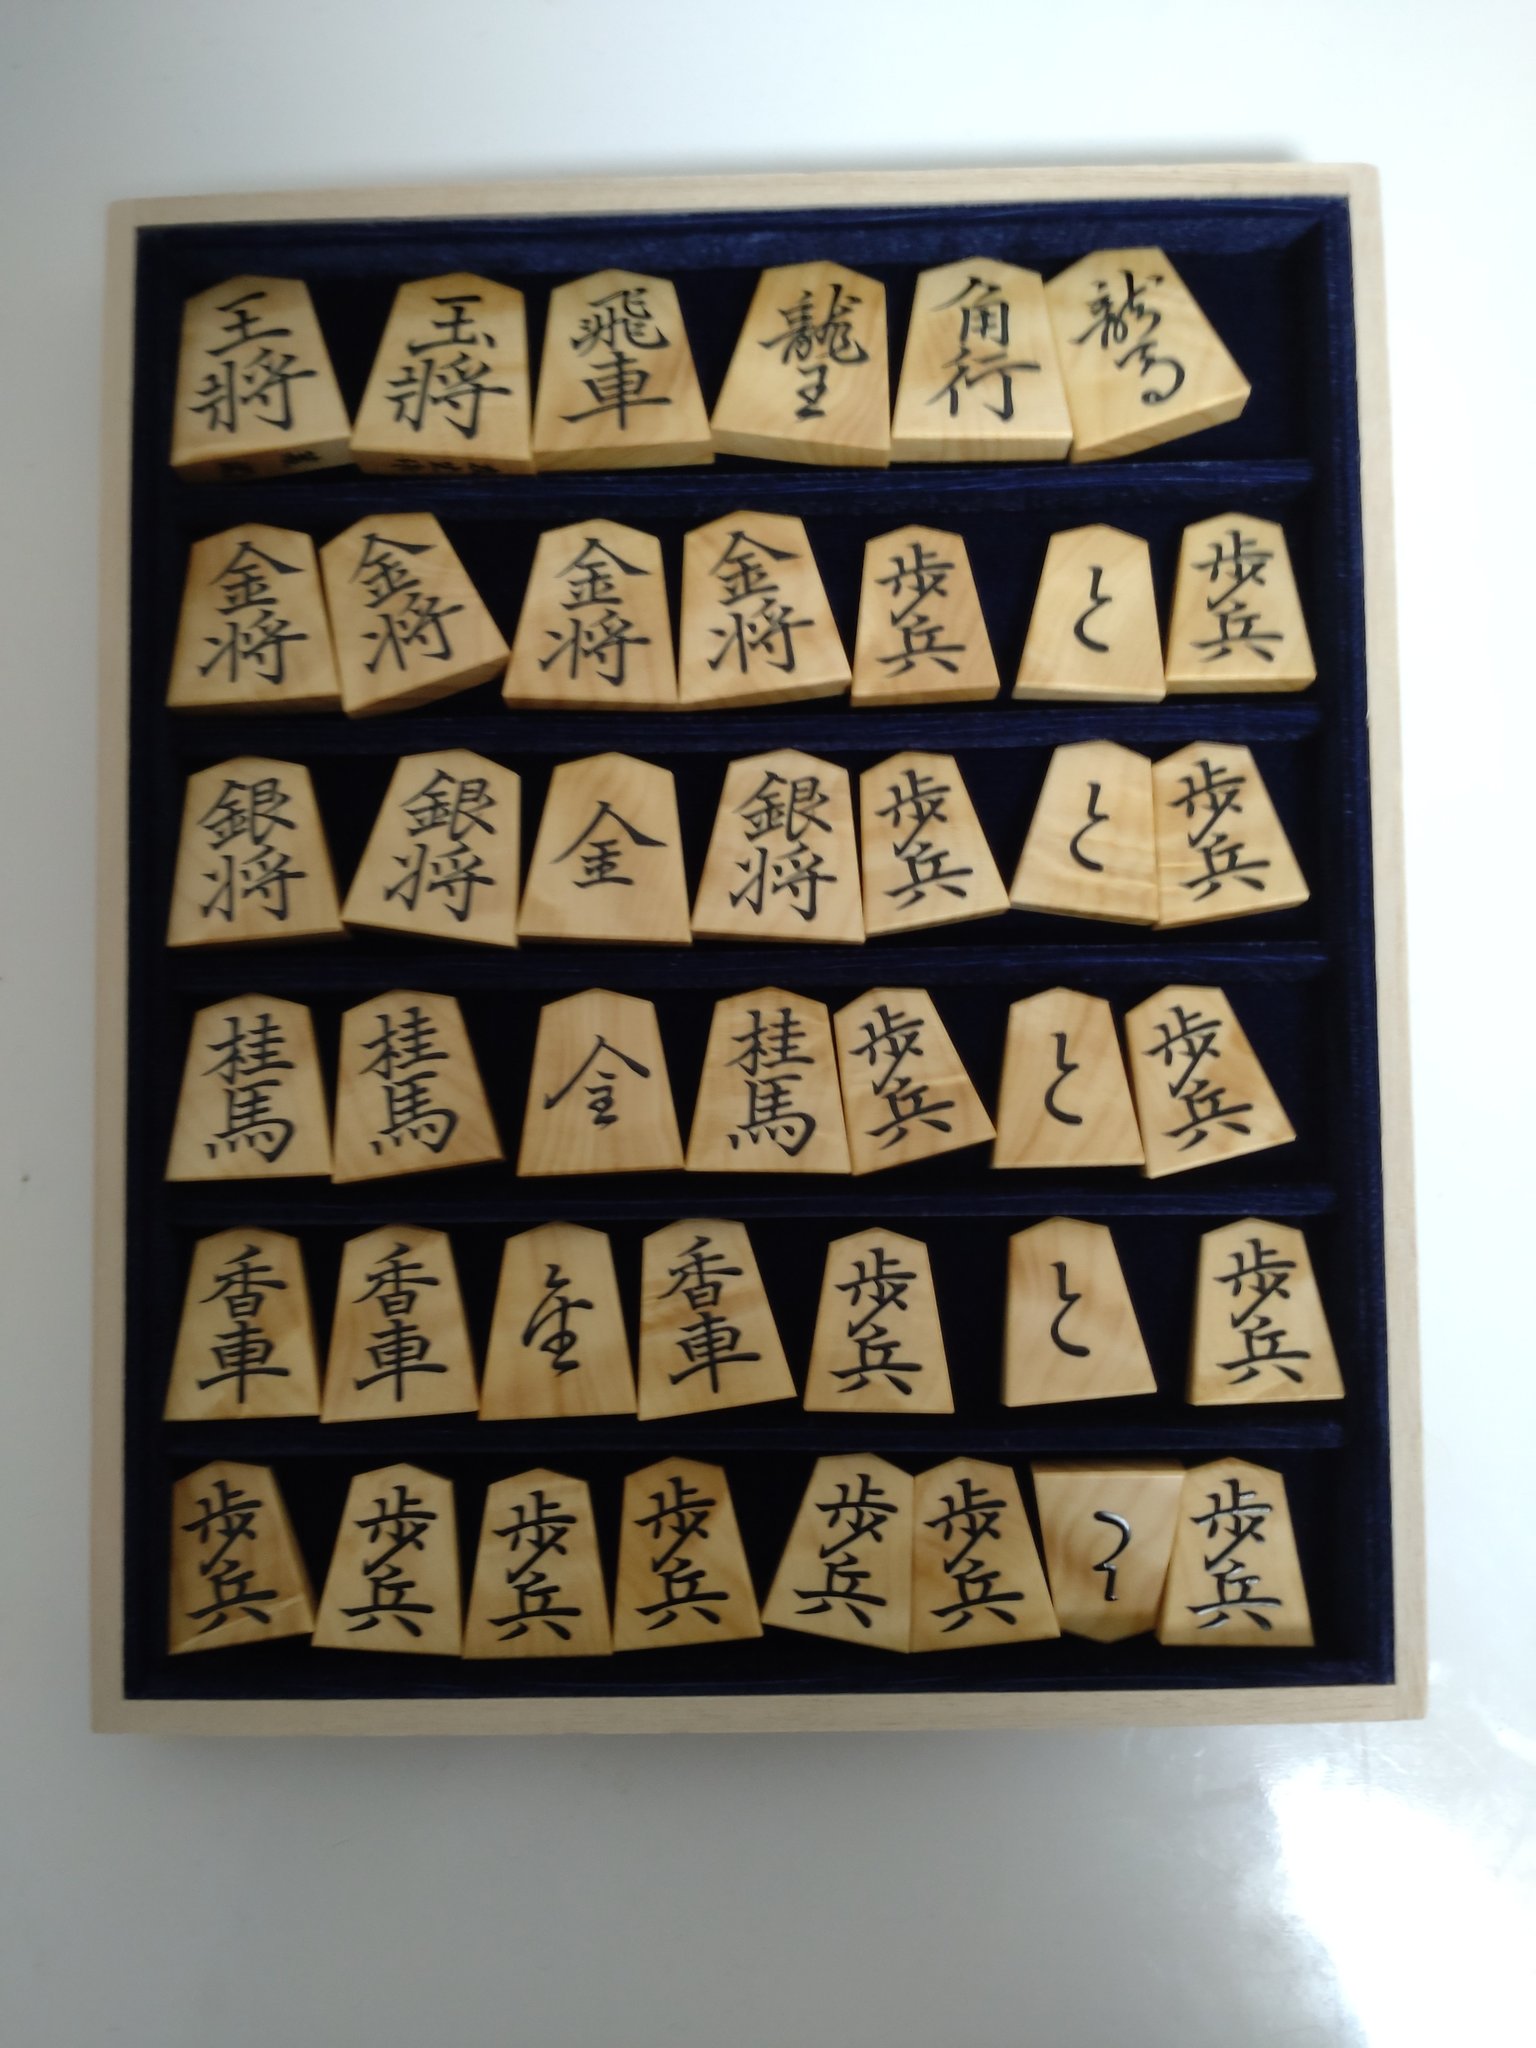 王将 玉将 飛車 龍王 角行 龍馬
金将 金将 金将 金将 歩兵 と 歩兵
銀将 銀将 全 銀将 歩兵 と 歩兵
桂馬 桂馬 金 桂馬 歩兵 と 歩兵
香車 香車 金 香車 歩兵 と 歩兵
歩兵 歩兵 歩兵 歩兵 歩兵 歩兵 と 歩兵